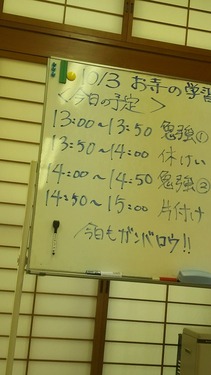 10/3 お寺の学習
<今日の予定>
13:00～13:50 勉強①
13:50～14:00 休けい
14:00～14:50 勉強②
14:50～15:00 片付け
今日もガンバロウ!!